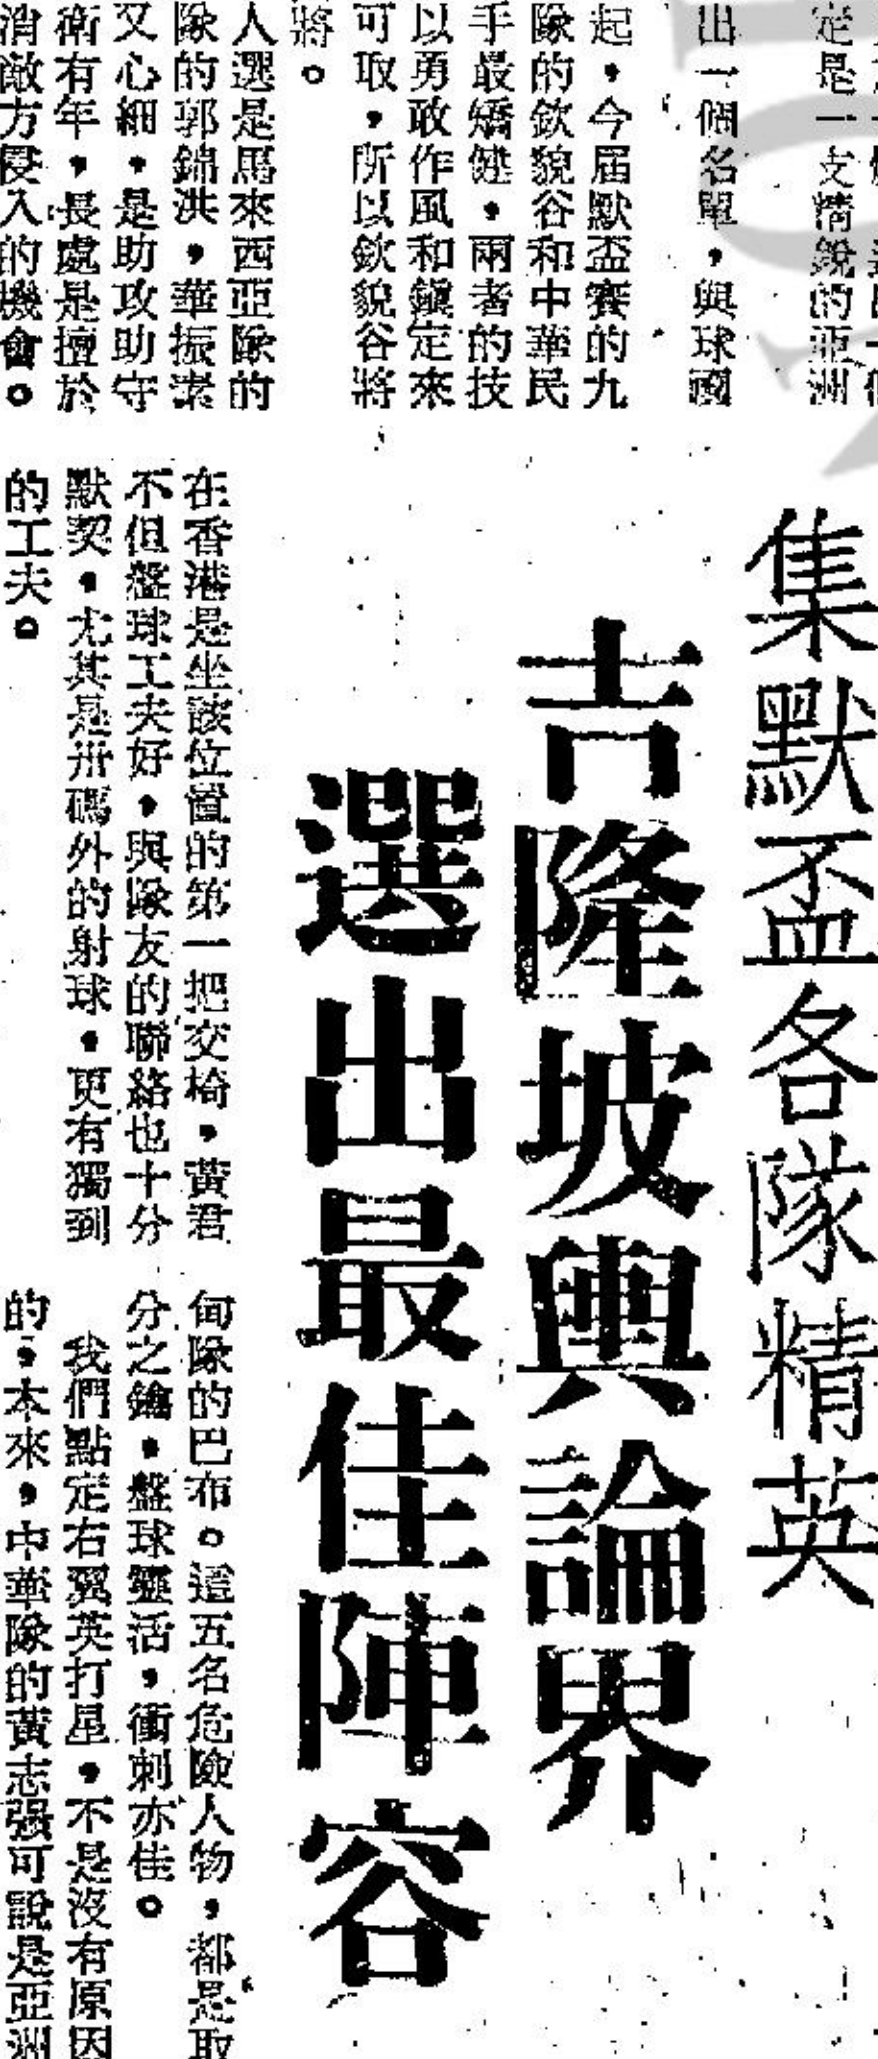 集默盃各隊精英
吉隆坡輿論界
選出最佳陣容
定是一支精銳的亞洲
出一個名單，與球國
起，今屆默盃賽的九
隊的欽貌谷和中華民
手最矯健，兩者的技
以勇敢作風和鎭定來
可取，所以欽貌谷將
將。
人選是馬來西亞隊的
隊的郭錦洪，華振素
又心細，是助攻助守
衛有年，長處是擅於
消敵方侵入的機會。
在香港是坐該位置的第一把交椅，黃君
不但盤球工夫好，與隊友的聯絡也十分
默契，尤其是卅碼外的射球，更有獨到
的工夫。
甸隊的巴布。這五名危險人物，都是取
分之鑰，盤球靈活，衝刺亦佳。
我們點定右翼英打星，不是沒有原因
的，本來，中華隊的黃志强可說是亞洲